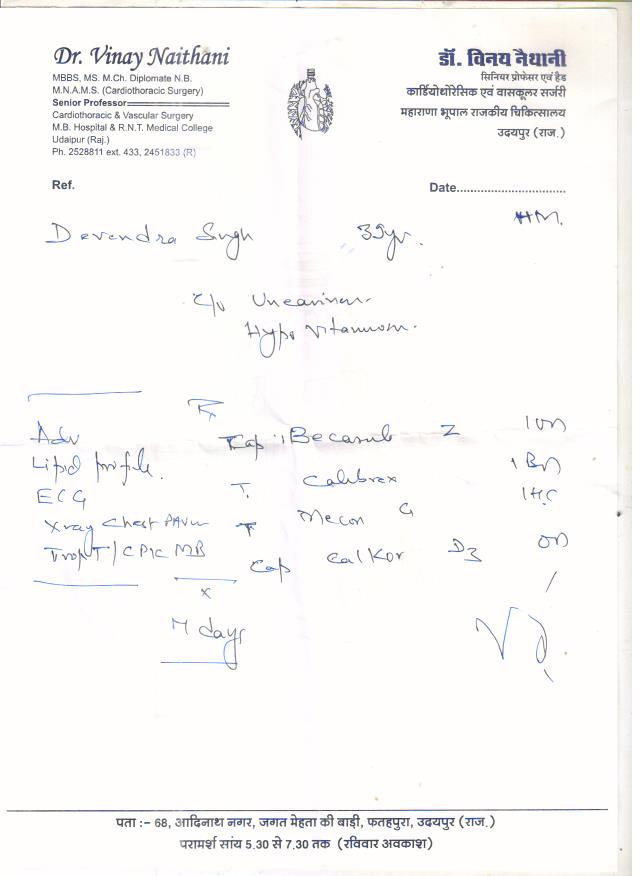 Dr. Vinay Naithani
MBBS, MS. M.Ch. Diplomate N.B.
M.N.A.M.S. (Cardiothoracic Surgery)
Senior Professor
Cardiothoracic & Vascular Surgery
M.B. Hospital & R.N.T. Medical College
Udaipur (Raj.)
Ph. 2528811 ext. 433, 2451833 (R)
डॉ. विनय नैथानी
सिनियर प्रोफेसर एवं हैड
कार्डियोथोरेसिक एवं वासकूलर सर्जरी
महाराणा भूपाल राजकीय चिकित्सालय
उदयपुर (राज.)
Ref.
Date..............................
Devendra Singh 39yr.
Hypo
Rx
Adv
Cap: Becasule Z
Lipid profile.
T.
ECG
T Mecon G
Xray Chest PA View
Trop T/CPK MB
Cap Calkor D3
x
7 days
पता :– 68, आदिनाथ नगर, जगत मेहता की बाड़ी, फतहपुरा, उदयपुर (राज.)
परामर्श सांय 5.30 से 7.30 तक (रविवार अवकाश)